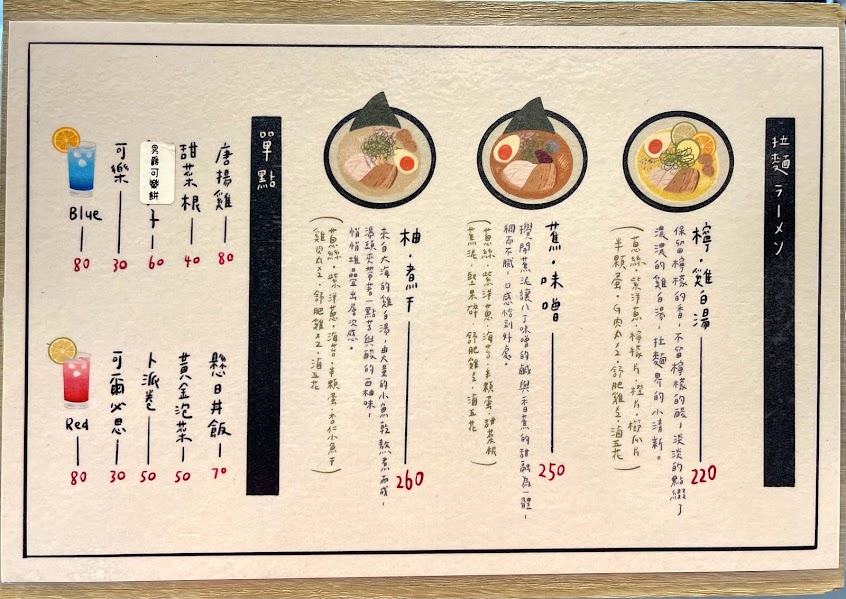 拉麵 ラーメン
檸・雞白湯 220
保留檸檬的香,不留檸檬的酸,淡淡的點綴了
濃濃的雞白湯,拉麵界的小清新。
(蔥絲・紫洋蔥・檸檬片・橙片・櫛瓜片
半顆蛋・G肉丸x2・舒肥雞x2・滷五花)
蕉・味噌 250
攪開蕉泥讓八丁味噌的鹹與香蕉的甜融為一體,
稠而不膩,口感恰到好處。
(蔥絲・紫洋蔥・海苔・半顆蛋・甜菜根
蕉泥・堅果碎・舒肥雞x2・滷五花)
柚・煮干 260
來自大海的雞白湯,由大量的小魚乾熬煮而成,
湯頭夾帶著一點苦與酸的西柚味,
悄悄堆疊出層次感。
(蔥絲・紫洋蔥・海苔・半顆蛋・杏仁小魚干
雞肉丸x2・舒肥雞x2・滷五花)
單點
唐揚雞 80
甜菜根 40
男爵可樂餅 60
可樂 30
Blue 80
懸日丼飯 70
黃金泡菜 50
卜派卷 50
可爾必思 30
Red 80